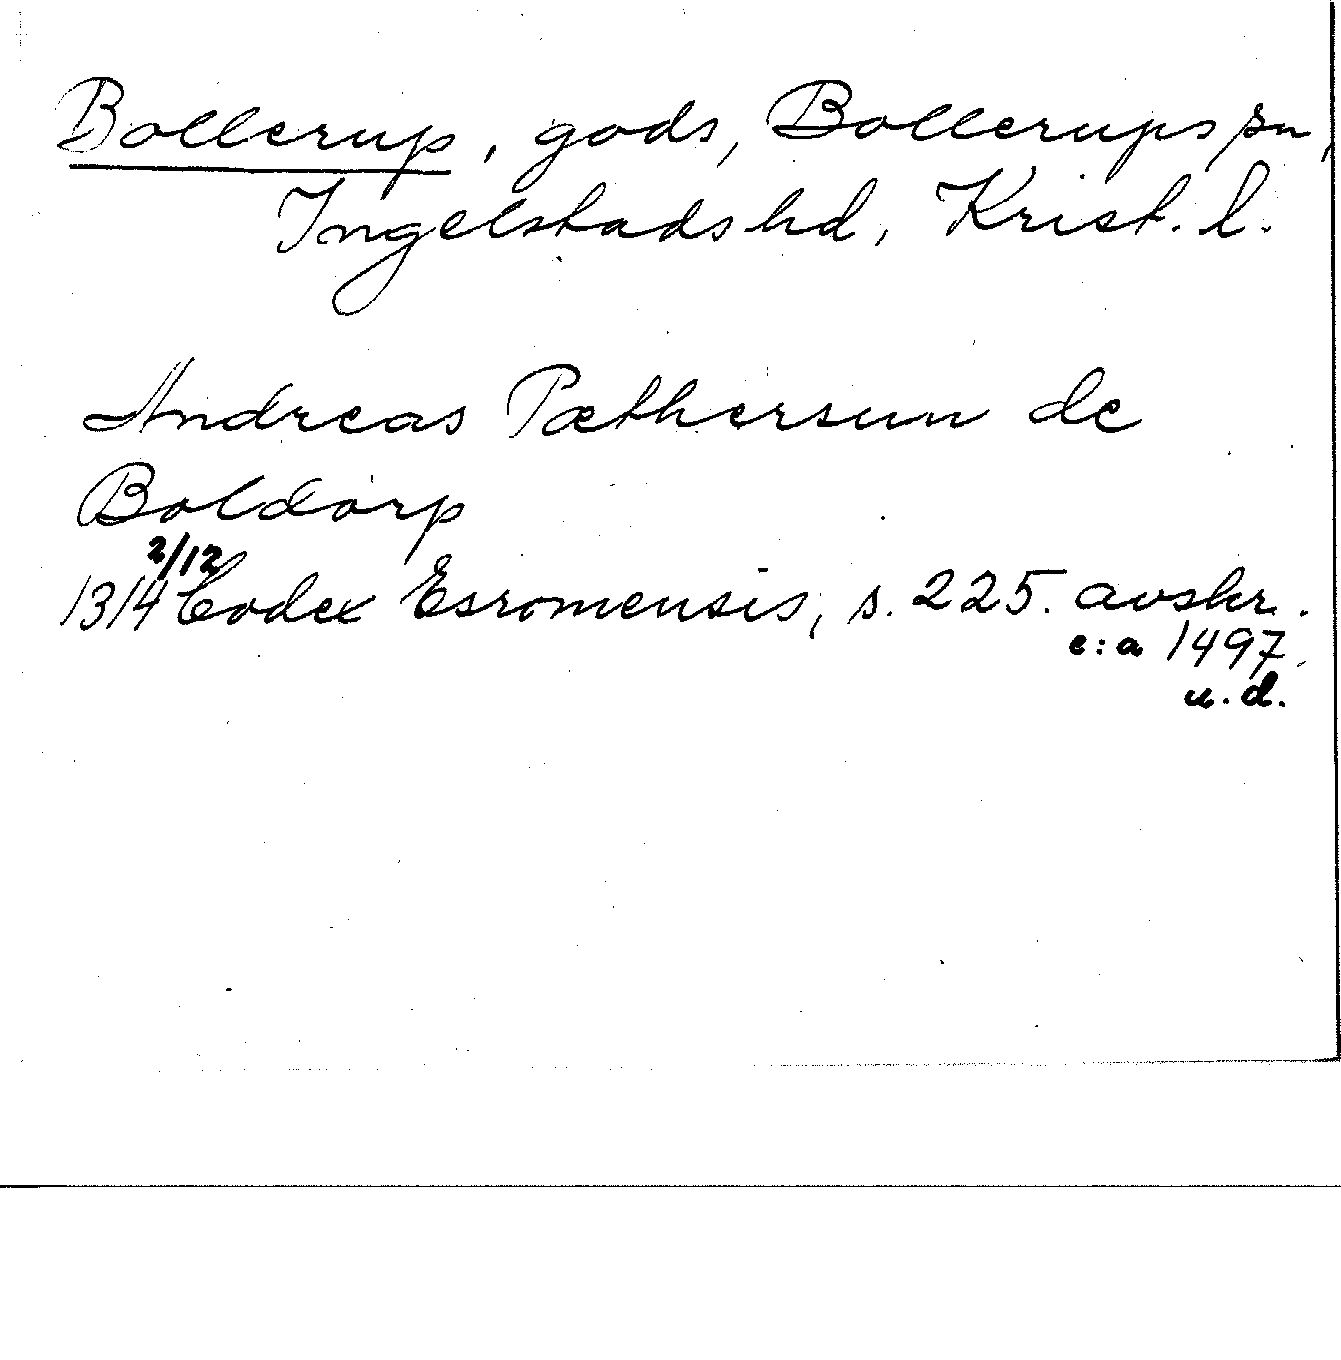 Bollerup, gods, Bollerups sn,
Ingelstads hd, Krist. l.
Andreas Pæthersun de
Boldorp
2/12
1314 Codex Esromensis, s. 225. avskr.
e:a 1497.
u.d.